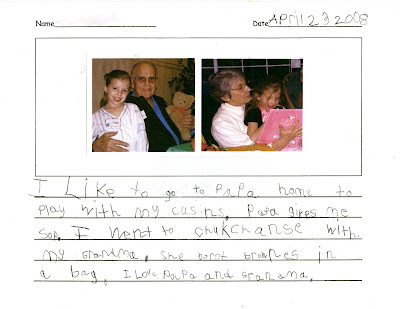 Name
Date APril 23 2008
I Like to go to PaPa home to
play with my casins. Papa gives me
sop. I went to chukchanse with
my grandma. She borot brownies in
a bag. I Love PaPa and Granama.